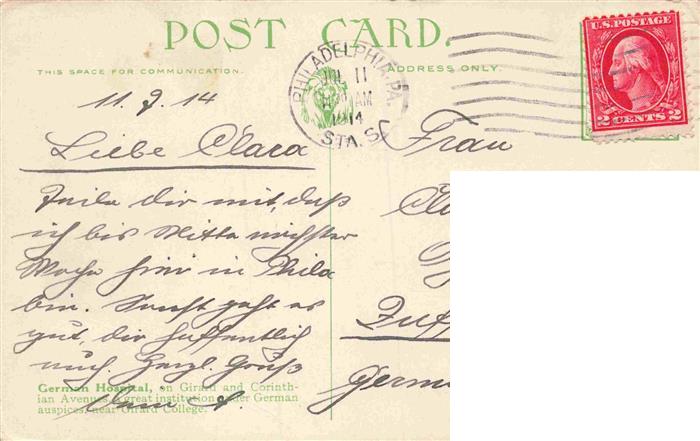 POST CARD.
THIS SPACE FOR COMMUNICATION.
ADDRESS ONLY.
PHILADELPHIA, PA.
JUL 11
AM
1914
STA. S.
U.S. POSTAGE
2 CENTS 2
11. J. 14
Liebe Clara
Teile dir mit, daß
ich bis Mitte nächster
Woche hier in Phila
bin. Sonst geht es
gut, dir hoffentlich
auch. Herzl. Gruß
Dein A.
German Hospital, on Girard and Corinth-
ian Avenues. A great institution under German
auspices, near Girard College.
Frau
Germ